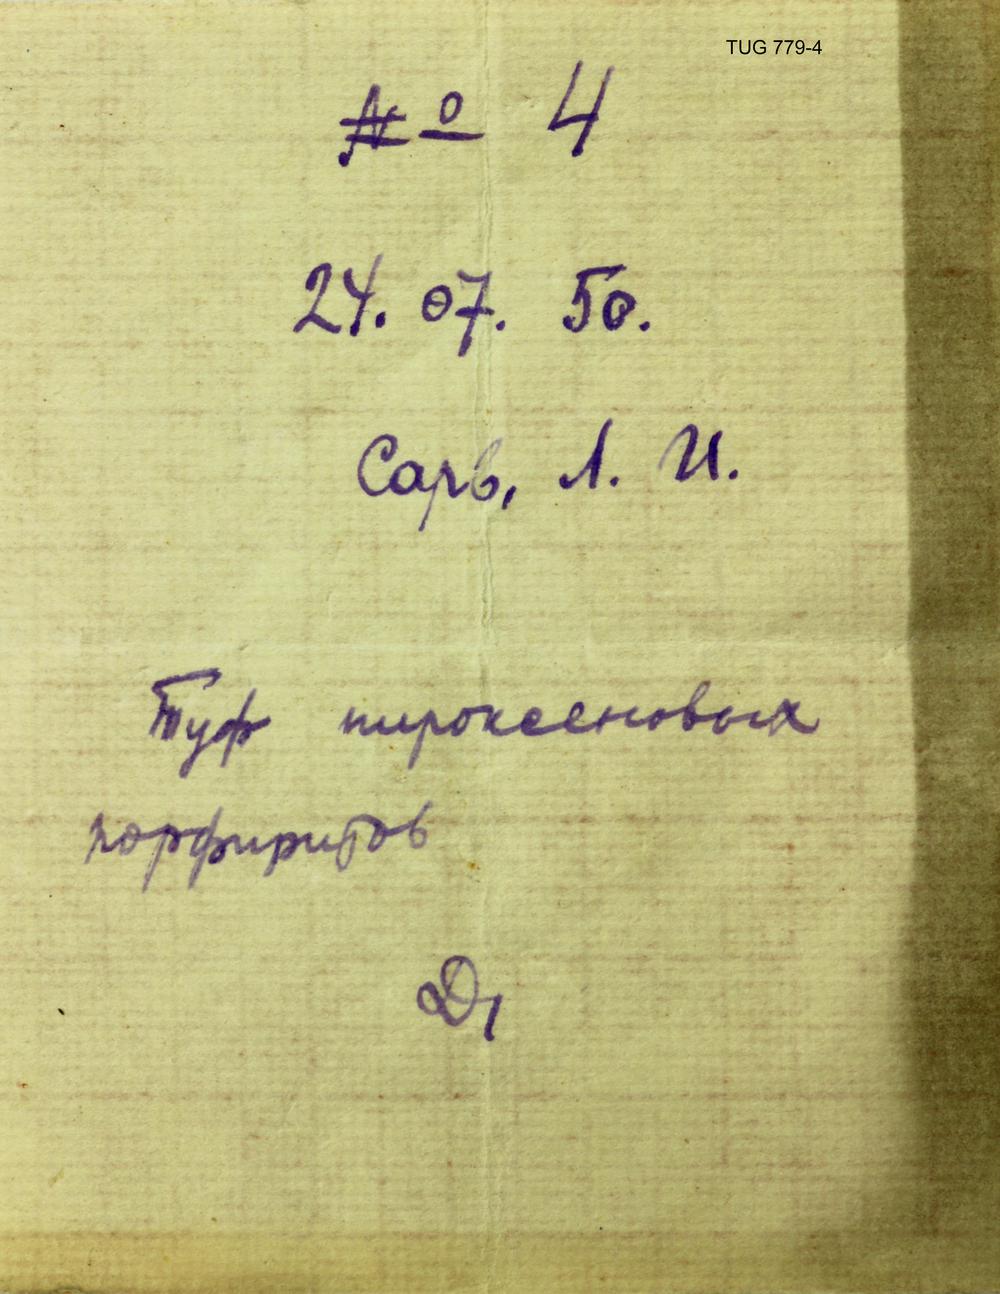 TUG 779-4
№ 4
24. 07. 50.
Сарв, Л. И.
Туф пироксеновых
порфиритов
D1